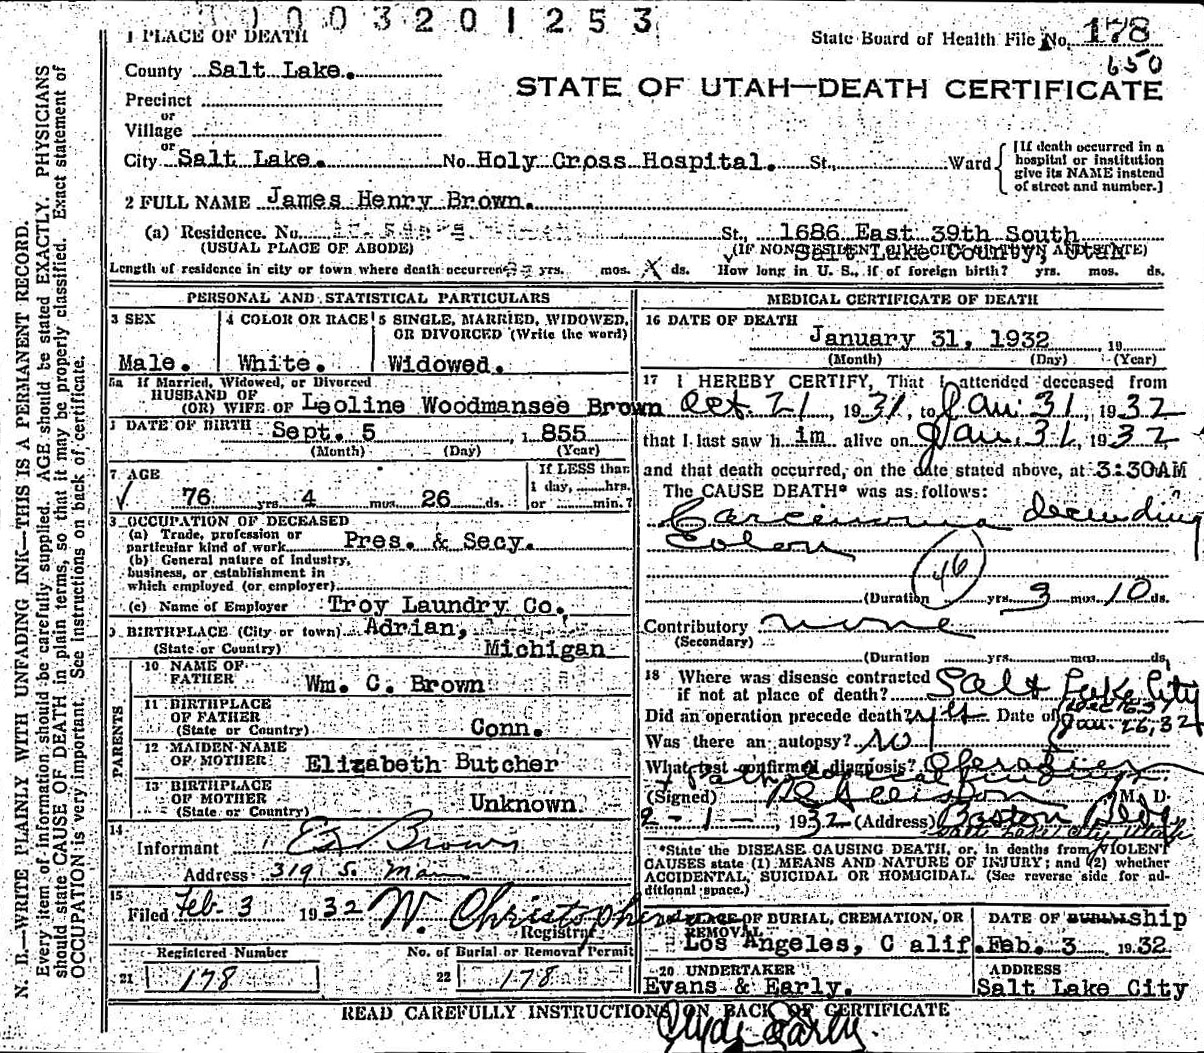 1003201253
1 PLACE OF DEATH
State Board of Health File No. 178
650
County Salt Lake.
STATE OF UTAH—DEATH CERTIFICATE
Precinct
or
Village
or
City Salt Lake. No. Holy Cross Hospital. St., Ward
[If death occurred in a hospital or institution give its NAME instead of street and number.]
2 FULL NAME James Henry Brown.
(a) Residence. No. St., 1686 East 39th South
(USUAL PLACE OF ABODE) (IF NONRESIDENT GIVE CITY OR TOWN AND STATE)
Salt Lake County, Utah
Length of residence in city or town where death occurred yrs. mos. X ds. How long in U. S., if of foreign birth? yrs. mos. ds.
PERSONAL AND STATISTICAL PARTICULARS
3 SEX
Male.
4 COLOR OR RACE
White.
5 SINGLE, MARRIED, WIDOWED, OR DIVORCED (Write the word)
Widowed.
5a If Married, Widowed, or Divorced
HUSBAND OF
(OR) WIFE OF Leoline Woodmansee Brown
DATE OF BIRTH Sept. 5, 1855
(Month) (Day) (Year)
7 AGE
76 yrs. 4 mos. 26 ds.
If LESS than
1 day, hrs.
or min.?
OCCUPATION OF DECEASED
(a) Trade, profession or
particular kind of work Pres. & Secy.
(b) General nature of Industry,
business, or establishment in
which employed (or employer)
(c) Name of Employer Troy Laundry Co.,
BIRTHPLACE (City or town) Adrian,
(State or Country) Michigan
PARENTS
10 NAME OF
FATHER Wm. C. Brown
11 BIRTHPLACE
OF FATHER
(State or Country) Conn.
12 MAIDEN NAME
OF MOTHER Elizabeth Butcher
13 BIRTHPLACE
OF MOTHER
(State or Country) Unknown
14
Informant Ed Brown
Address 319 S. Main
15
Filed Feb. 3 1932 W. Christopherson
Registrar
Registered Number
21 178
No. of Burial or Removal Permit
22 178
MEDICAL CERTIFICATE OF DEATH
16 DATE OF DEATH
January 31, 1932 19
(Month) (Day) (Year)
17 I HEREBY CERTIFY, That I attended deceased from
Oct. 21, 1931, to Jan. 31, 1932
that I last saw him alive on Jan. 31, 1932
and that death occurred, on the date stated above, at 3:30AM
The CAUSE DEATH* was as follows:
Carcinoma decending
Colon
46
(Duration yrs. 3 mos. 10 ds.
Contributory none
(Secondary)
(Duration yrs. mos. ds.
18 Where was disease contracted
if not at place of death? Salt Lake City
Did an operation precede death? yes Date of Jan. 26, 32
Was there an autopsy? No
What test confirmed diagnosis? Operation
+ Pathological findings
(Signed) M. D.
2-1-, 1932 (Address) Boston Bldg
Salt Lake City, Utah
*State the DISEASE CAUSING DEATH, or, in deaths from VIOLENT
CAUSES state (1) MEANS AND NATURE OF INJURY; and (2) whether
ACCIDENTAL, SUICIDAL OR HOMICIDAL. (See reverse side for ad-
ditional space.)
PLACE OF BURIAL, CREMATION, OR
REMOVAL
Los Angeles, C alif.
DATE OF BURIAL ship
Feb. 3 1932
20 UNDERTAKER
Evans & Early.
ADDRESS
Salt Lake City
READ CAREFULLY INSTRUCTIONS ON BACK OF CERTIFICATE
Clyde Early.
N. B.—WRITE PLAINLY WITH UNFADING INK—THIS IS A PERMANENT RECORD.
Every item of information should be carefully supplied. AGE should be stated EXACTLY. PHYSICIANS
should state CAUSE OF DEATH in plain terms, so that it may be properly classified. Exact statement of
OCCUPATION is very important. See Instructions on back of certificate.